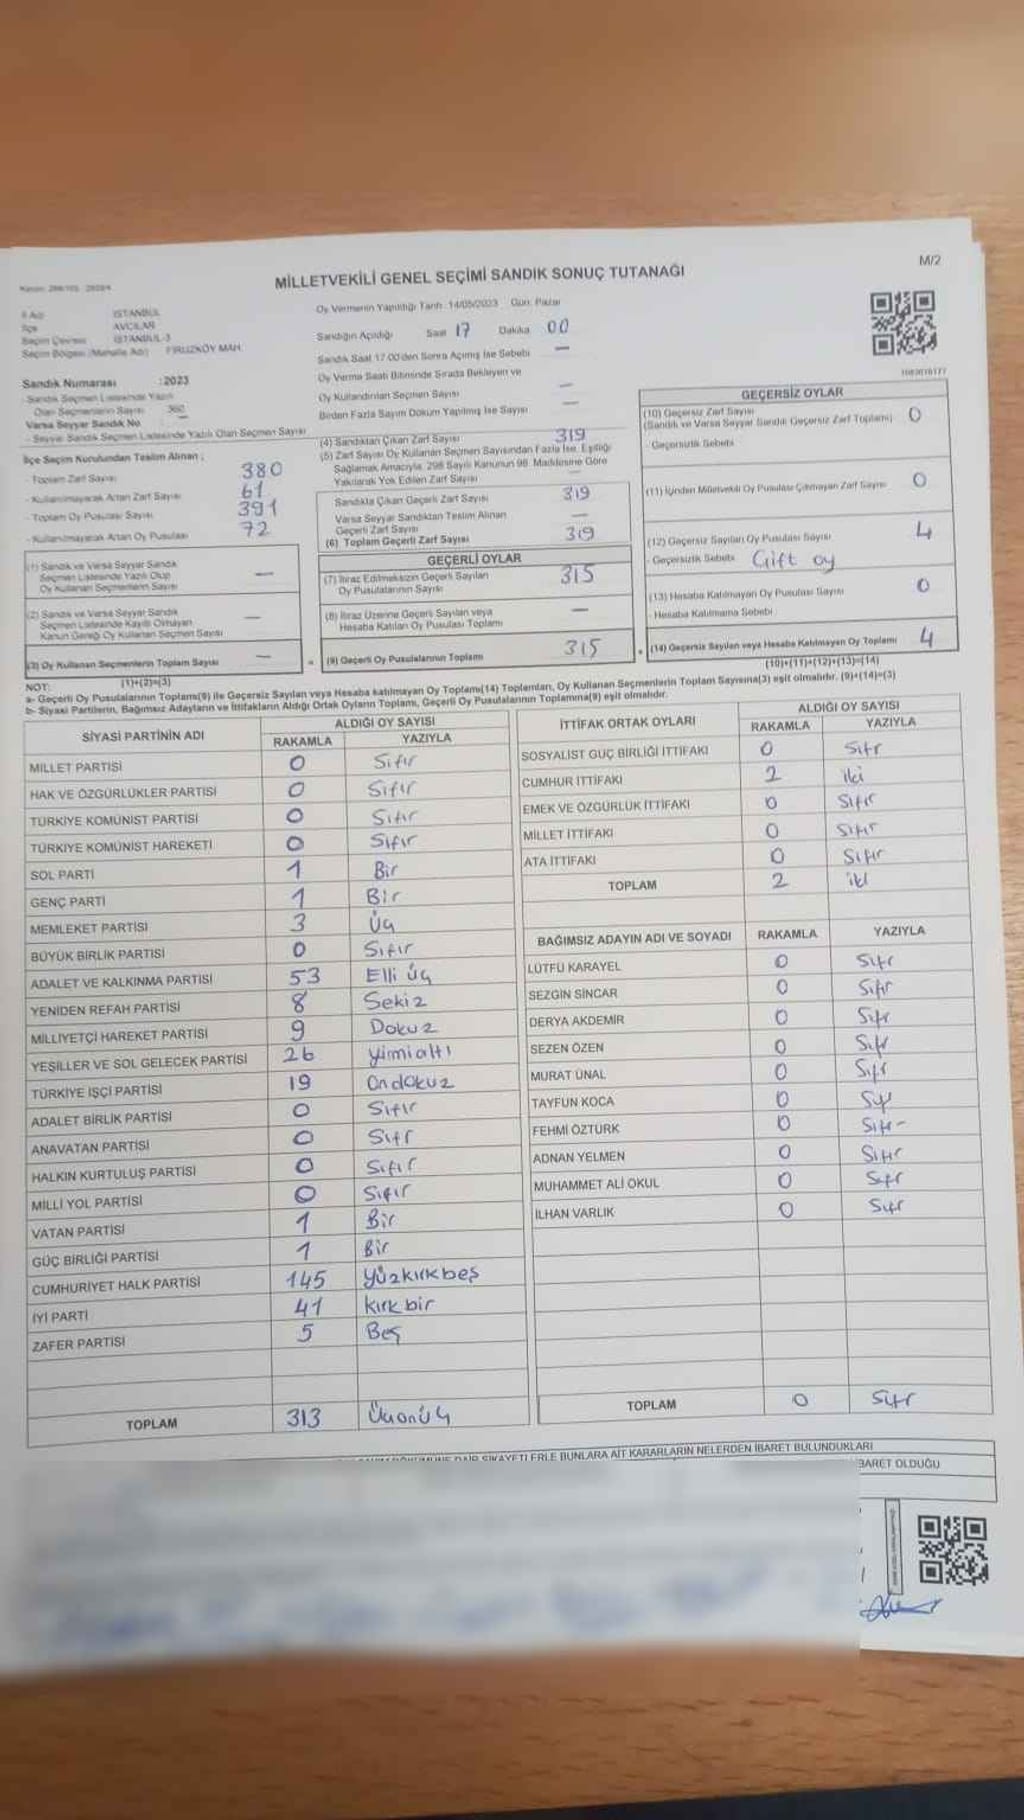 M/2
MİLLETVEKİLİ GENEL SEÇİMİ SANDIK SONUÇ TUTANAĞI
İl Adı İSTANBUL
İlçe AVCILAR
Seçim Çevresi İSTANBUL-3
Seçim Bölgesi (Mahalle Adı) FİRUZKÖY MAH.
Sandık Numarası :2023
- Sandık Seçmen Listesinde Yazılı
Olan Seçmenlerin Sayısı 360
Varsa Seyyar Sandık No
- Seyyar Sandık Seçmen Listesinde Yazılı Olan Seçmen Sayısı
İlçe Seçim Kurulundan Teslim Alınan ;
- Toplam Zarf Sayısı 380
- Kullanılmayarak Artan Zarf Sayısı 61
- Toplam Oy Pusulası Sayısı 391
- Kullanılmayarak Artan Oy Pusulası 72
(1) Sandık ve Varsa Seyyar Sandık
Seçmen Listesinde Yazılı Olup
Oy Kullanan Seçmenlerin Sayısı —
(2) Sandık ve Varsa Seyyar Sandık
Seçmen Listesinde Kayıtlı Olmayan
Kanun Gereği Oy Kullanan Seçmen Sayısı —
(3) Oy Kullanan Seçmenlerin Toplam Sayısı —
(1)+(2)=(3)
Oy Vermenin Yapıldığı Tarih: 14/05/2023 Gün: Pazar
Sandığın Açıldığı Saat 17 Dakika 00
Sandık Saat 17.00'den Sonra Açılmış İse Sebebi —
Oy Verme Saati Bitiminde Sırada Bekleyen ve
Oy Kullandırılan Seçmen Sayısı —
Birden Fazla Sayım Döküm Yapılmış İse Sayısı —
(4) Sandıktan Çıkan Zarf Sayısı 319
(5) Zarf Sayısı Oy Kullanan Seçmen Sayısından Fazla İse, Eşitliği
Sağlamak Amacıyla, 298 Sayılı Kanunun 98. Maddesine Göre
Yakılarak Yok Edilen Zarf Sayısı —
Sandıkta Çıkan Geçerli Zarf Sayısı 319
Varsa Seyyar Sandıktan Teslim Alınan
Geçerli Zarf Sayısı —
(6) Toplam Geçerli Zarf Sayısı 319
GEÇERLİ OYLAR
(7) İtiraz Edilmeksizin Geçerli Sayılan
Oy Pusulalarının Sayısı 315
(8) İtiraz Üzerine Geçerli Sayılan veya
Hesaba Katılan Oy Pusulası Toplamı —
= (9) Geçerli Oy Pusulalarının Toplamı 315
GEÇERSİZ OYLAR
(10) Geçersiz Zarf Sayısı
(Sandık ve Varsa Seyyar Sandık Geçersiz Zarf Toplamı) 0
- Geçersizlik Sebebi
(11) İçinden Milletvekili Oy Pusulası Çıkmayan Zarf Sayısı 0
(12) Geçersiz Sayılan Oy Pusulası Sayısı 4
- Geçersizlik Sebebi Çift oy
(13) Hesaba Katılmayan Oy Pusulası Sayısı 0
- Hesaba Katılmama Sebebi
+ (14) Geçersiz Sayılan veya Hesaba Katılmayan Oy Toplamı 4
(10)+(11)+(12)+(13)=(14)
NOT:
a- Geçerli Oy Pusulalarının Toplamı(9) ile Geçersiz Sayılan veya Hesaba katılmayan Oy Toplamı(14) Toplamları, Oy Kullanan Seçmenlerin Toplam Sayısına(3) eşit olmalıdır. (9)+(14)=(3)
b- Siyasi Partilerin, Bağımsız Adayların ve İttifakların Aldığı Ortak Oyların Toplamı, Geçerli Oy Pusulalarının Toplamına(9) eşit olmalıdır.
SİYASİ PARTİNİN ADI ALDIĞI OY SAYISI
RAKAMLA YAZIYLA
MİLLET PARTİSİ 0 Sıfır
HAK VE ÖZGÜRLÜKLER PARTİSİ 0 Sıfır
TÜRKİYE KOMÜNİST PARTİSİ 0 Sıfır
TÜRKİYE KOMÜNİST HAREKETİ 0 Sıfır
SOL PARTİ 1 Bir
GENÇ PARTİ 1 Bir
MEMLEKET PARTİSİ 3 Üç
BÜYÜK BİRLİK PARTİSİ 0 Sıfır
ADALET VE KALKINMA PARTİSİ 53 Elli üç
YENİDEN REFAH PARTİSİ 8 Sekiz
MİLLİYETÇİ HAREKET PARTİSİ 9 Dokuz
YEŞİLLER VE SOL GELECEK PARTİSİ 26 yimialtı
TÜRKİYE İŞÇİ PARTİSİ 19 Ondokuz
ADALET BİRLİK PARTİSİ 0 Sıfır
ANAVATAN PARTİSİ 0 Sıfr
HALKIN KURTULUŞ PARTİSİ 0 Sıfır
MİLLİ YOL PARTİSİ 0 Sıfır
VATAN PARTİSİ 1 Bir
GÜÇ BİRLİĞİ PARTİSİ 1 Bir
CUMHURİYET HALK PARTİSİ 145 yüzkırkbeş
İYİ PARTİ 41 kırk bir
ZAFER PARTİSİ 5 Beş
TOPLAM 313 Üçüonüç
İTTİFAK ORTAK OYLARI ALDIĞI OY SAYISI
RAKAMLA YAZIYLA
SOSYALİST GÜÇ BİRLİĞİ İTTİFAKI 0 Sıfr
CUMHUR İTTİFAKI 2 iki
EMEK VE ÖZGÜRLÜK İTTİFAKI 0 Sıfır
MİLLET İTTİFAKI 0 Sıfır
ATA İTTİFAKI 0 Sıfır
TOPLAM 2 iki
BAĞIMSIZ ADAYIN ADI VE SOYADI RAKAMLA YAZIYLA
LÜTFÜ KARAYEL 0 Sıfr
SEZGİN SİNCAR 0 Sıfr
DERYA AKDEMİR 0 Sıfr
SEZEN ÖZEN 0 Sıfr
MURAT ÜNAL 0 Sıfr
TAYFUN KOCA 0
FEHMİ ÖZTÜRK 0 Sıfr
ADNAN YELMEN 0 Sıfır
MUHAMMET ALİ OKUL 0 Sıfr
İLHAN VARLIK 0 Sıfr
TOPLAM 0 Sıfr
ŞİKAYETLERLE BUNLARA AİT KARARLARIN NELERDEN İBARET BULUNDUKLARI
BARET OLDUĞU